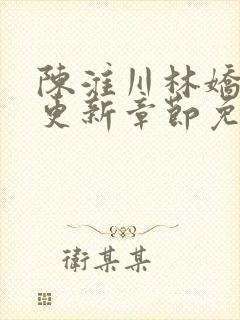 陳淮川林嬌
更新章節免
衛某某